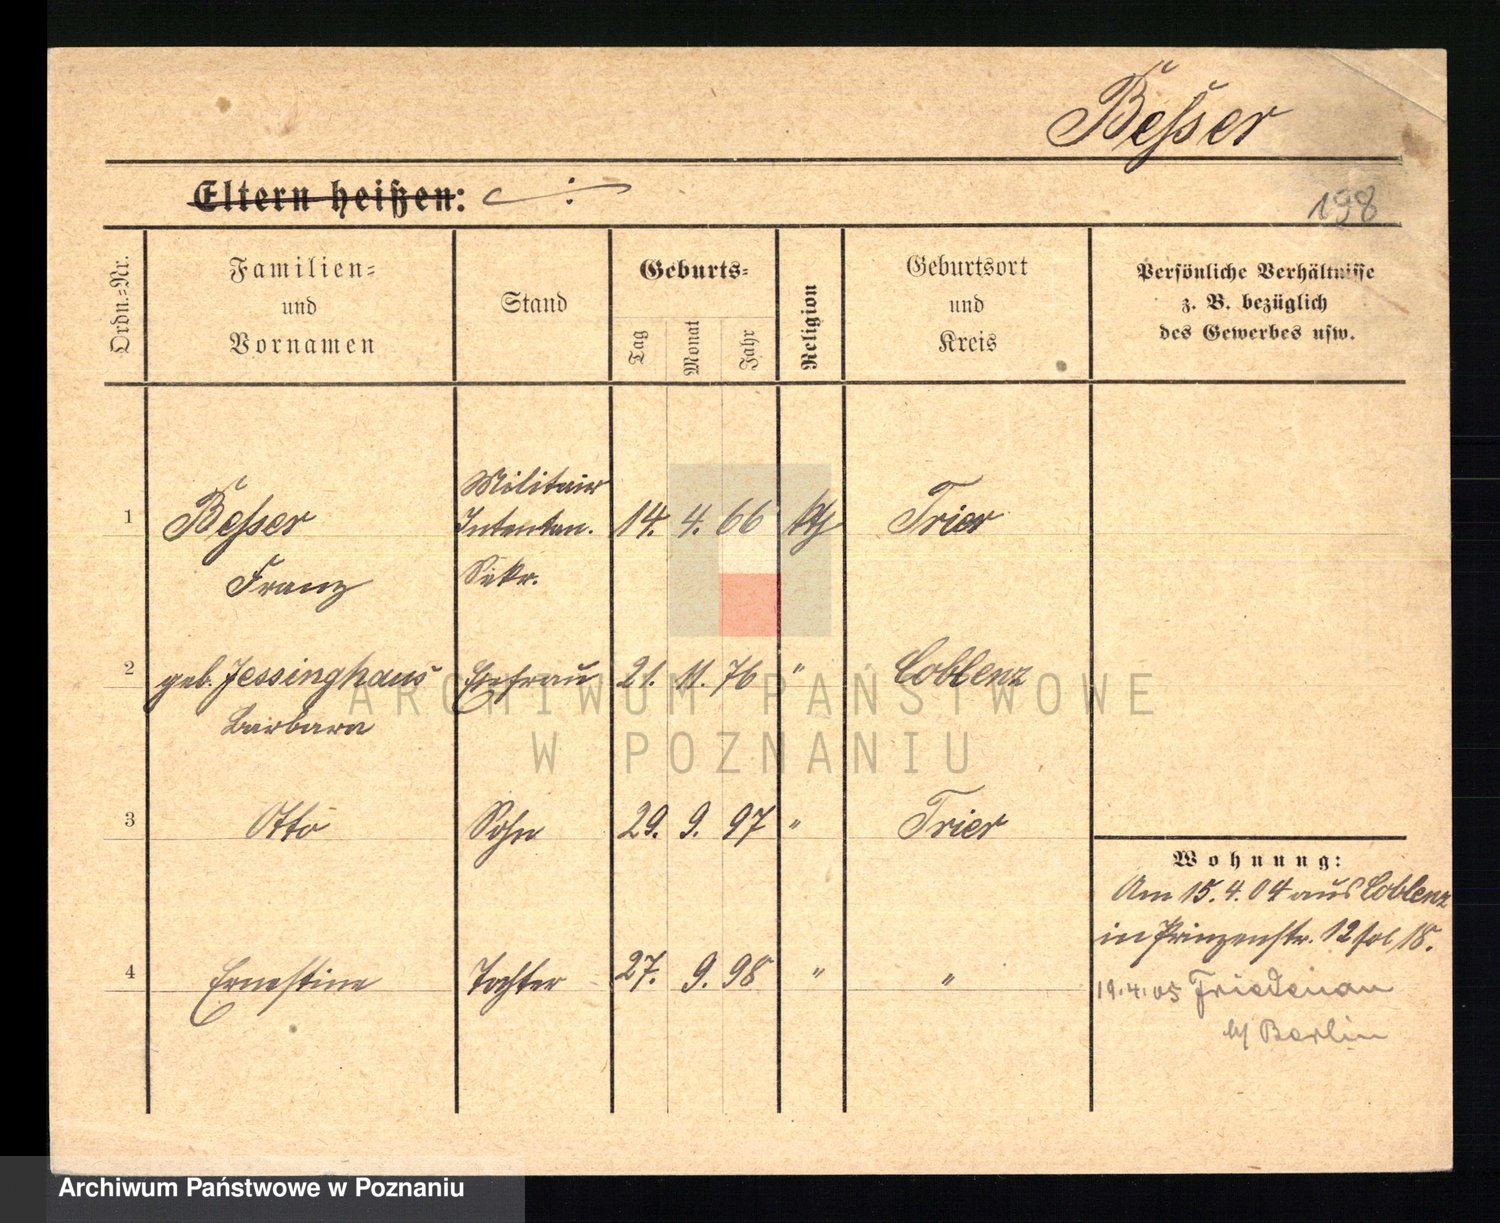 Besser
Eltern heißen:
198
Ordn.-Nr.
Familien-
und
Vornamen
Stand
Geburts-
Tag
Monat
Jahr
Religion
Geburtsort
und
Kreis
Persönliche Verhältnisse
z. B. bezüglich
des Gewerbes usw.
1 Besser
Franz
Militair
Intentan.
Sekr.
14. 4. 66 kth Trier
2 geb. Jessinghaus Ehefrau 21. 11. 76 " Coblenz
Barbara
3 Otto Sohn 29. 9. 97 " Trier
4 Ernestine Tochter 27. 9. 98 " "
Wohnung:
Am 15.4.04 aus Coblenz
in Prinzenstr. 12 fol. 18.
19.4.05 Friedenau
b/ Berlin
ARCHIWUM PAŃSTWOWE
W POZNANIU
Archiwum Państwowe w Poznaniu